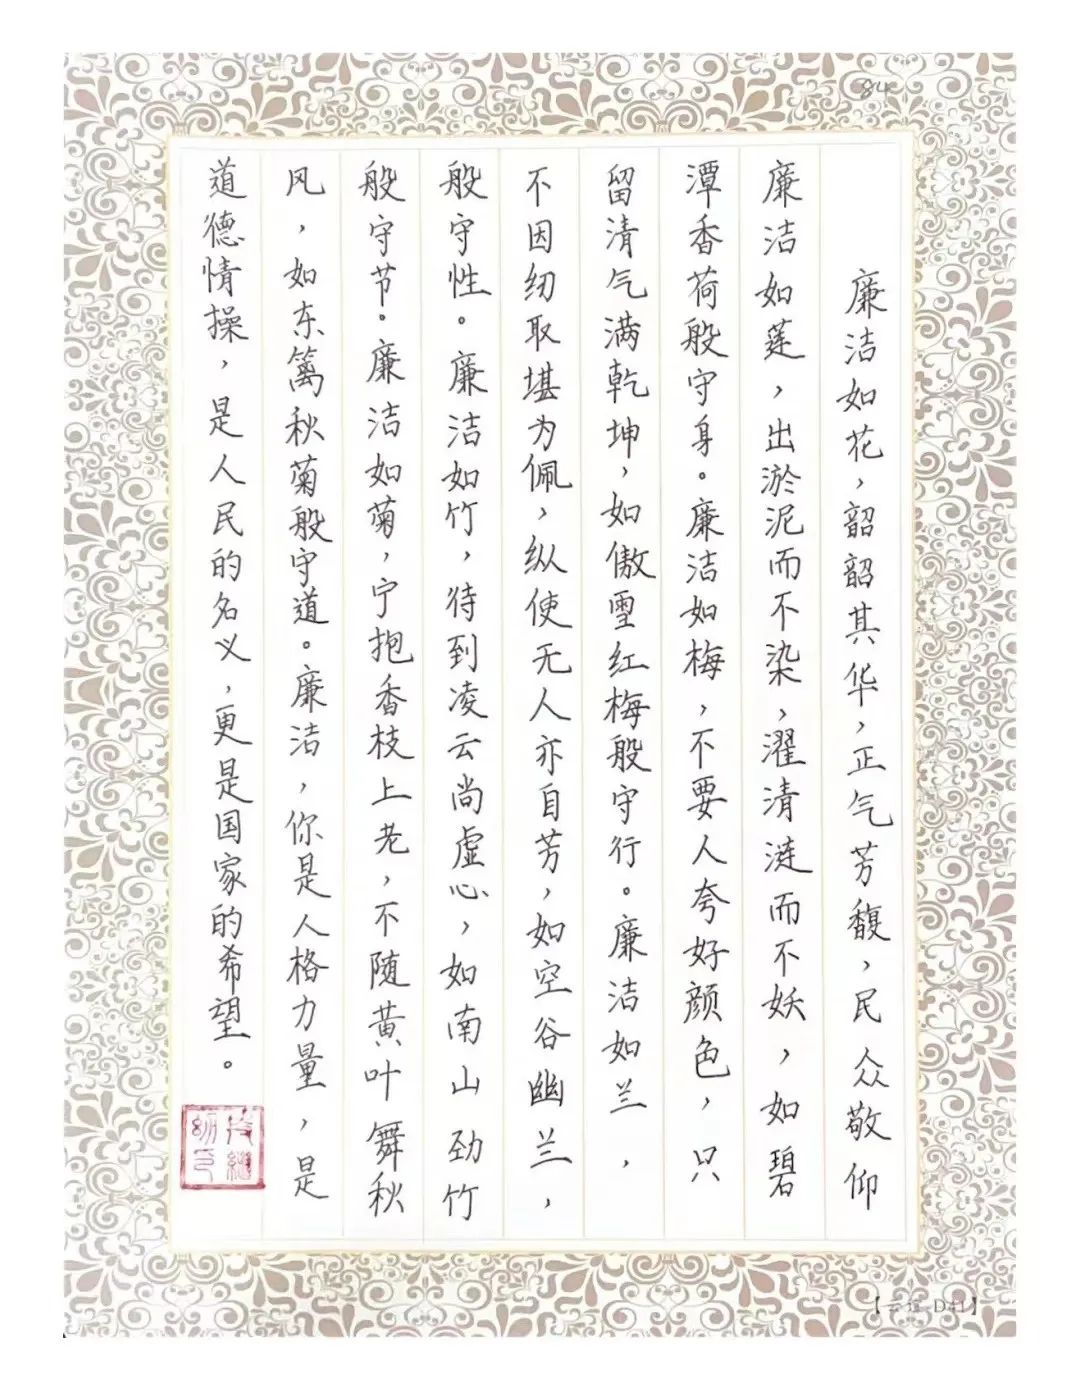 84
廉洁如花，韶韶其华，正气芳馥，民众敬仰
廉洁如莲，出淤泥而不染，濯清涟而不妖，如碧
潭香荷般守身。廉洁如梅，不要人夸好颜色，只
留清气满乾坤，如傲雪红梅般守行。廉洁如兰，
不因纫取堪为佩，纵使无人亦自芳，如空谷幽兰，
般守性。廉洁如竹，待到凌云尚虚心，如南山劲竹
般守节。廉洁如菊，宁抱香枝上老，不随黄叶舞秋
风，如东篱秋菊般守道。廉洁，你是人格力量，是
道德情操，是人民的名义，更是国家的希望。
D41】